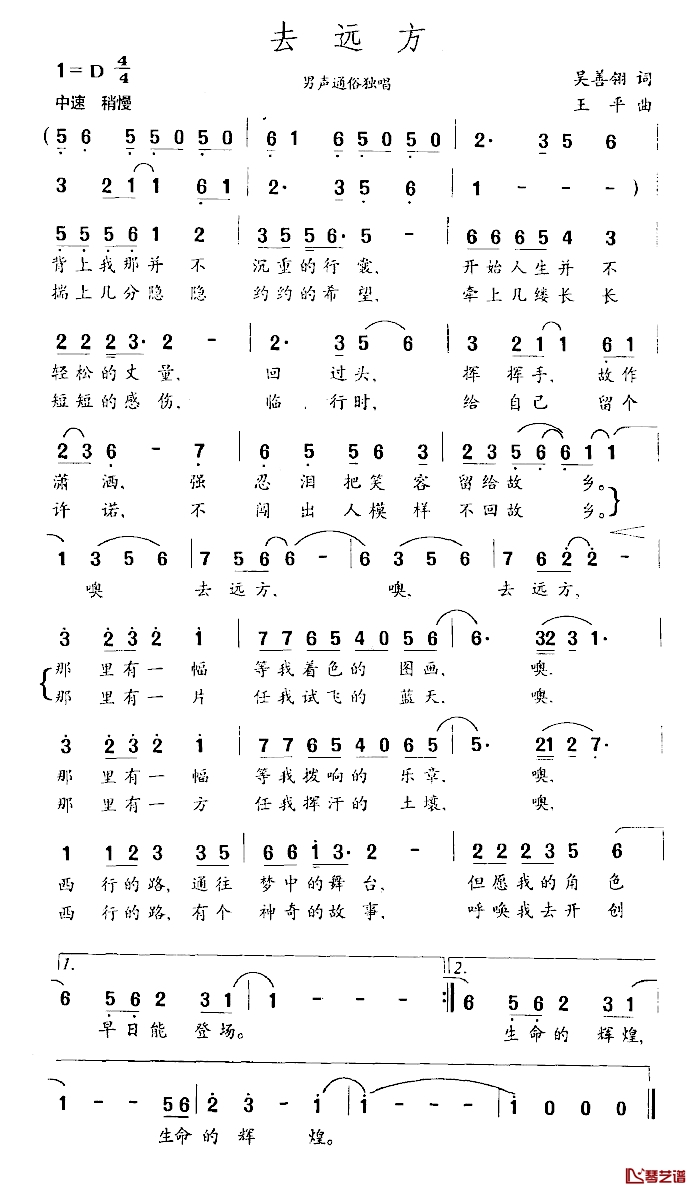 去远方
1=D 4/4
男声通俗独唱
吴善翎 词
中速 稍慢
王平 曲
(5 6 5 5 0 5 0 | 6 1 6 5 0 5 0 | 2· 3 5 6 |
3 2 1 1 6 1 | 2· 3 5 6 | 1 - - - ) |
5 5 5 6 1 2 | 3 5 5 6· 5 - | 6 6 6 5 4 3 |
背上我那并不 沉重的行囊, 开始人生并不
揣上几分隐隐 约约的希望, 牵上几缕长长
2 2 2 3· 2 - | 2· 3 5 6 | 3 2 1 1 6 1 |
轻松的丈量, 回过头, 挥挥手, 故作
短短的感伤, 临行时, 给自己留个
2 3 6 - 7 | 6 5 5 6 3 | 2 2 3 5 6 6 1 1
潇洒, 强 忍泪把笑容 留给故乡。
许诺, 不 闯出人模样 不回故乡。
1 3 5 6 | 7 5 6 6 - | 6 3 5 6 | 7 6 2 2 -
噢 去远方, 噢, 去远方,
3 2 3 2 1 | 7 7 6 5 4 0 5 6 | 6· 3 2 3 1·
那里有一幅 等我着色的图画, 噢.
那里有一片 任我试飞的蓝天, 噢.
3 2 3 2 1 | 7 7 6 5 4 0 6 5 | 5· 2 1 2 7·
那里有一幅 等我拨响的乐章, 噢,
那里有一方 任我挥汗的土壤, 噢,
1 1 2 3 3 5 | 6 6 1 3· 2 - | 2 2 2 3 5 6
西行的路, 通往 梦中的舞台, 但愿我的角色
西行的路, 有个 神奇的故事, 呼唤我去开创
1. 2.
6 5 6 2 3 1 | 1 - - - :| 6 5 6 2 3 1
早日能登场。 生命的辉煌,
1 - - 5 6 | 2 3 - 1 | 1 - - - 1 0 0 0 ‖
生命的辉煌。
琴艺谱